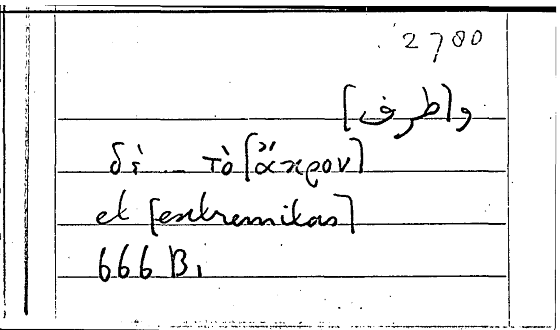 2700
و[طرف]
δὲ _ τὸ [ἄκρον]
et [extremitas]
666 B1